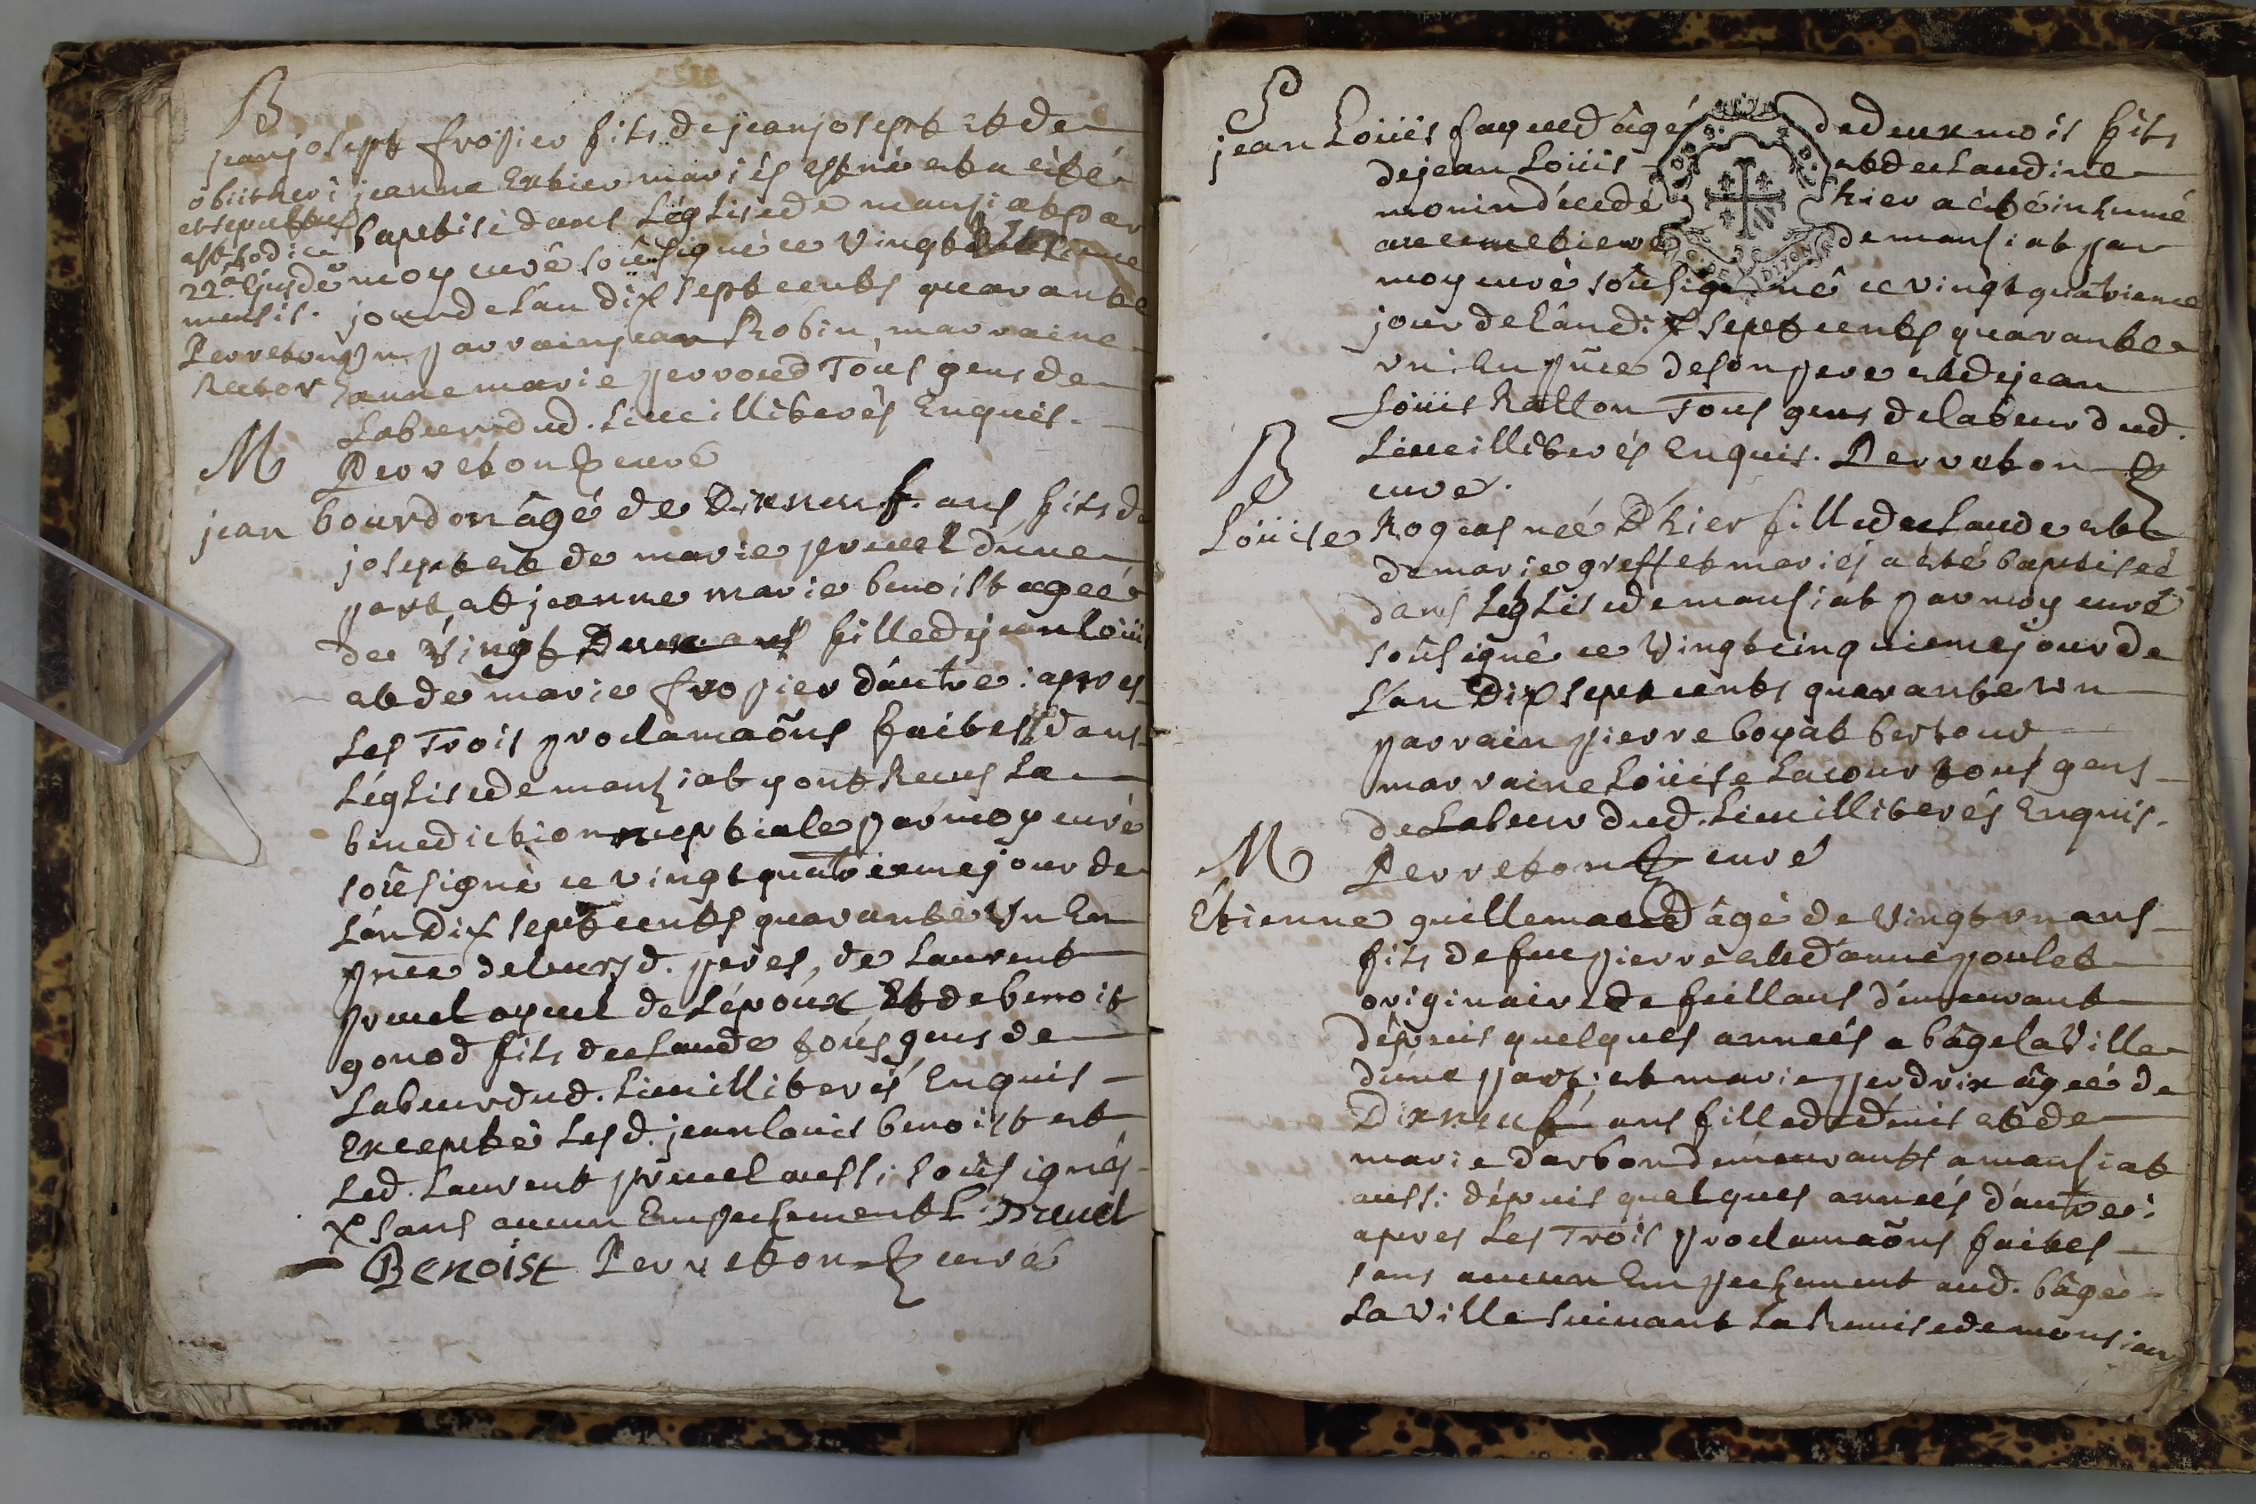 B
jean josept froपier fils de jean josept et de
jeanne Extier mariés est né et a èté
baptisé dans l'église de mansiat par
moy curé soûsigné ce vingt
jour de l'an dix sept cents quarante
un parrain jean Robin, marraine
anne marie perroud Tous gens de
Labeur dud. Lieu illiterés Enquis.
Perreton curé
obiit heri
et sepultus
est hodie
22a ejusdē
mensis.
Perreton
Rector
M
jean bourdon âgé de Dixneuf ans fils de
josept et de marie pruel d'une
part, et jeanne marie benoist ageé
de vingt Deux ans fille de jean loüis
et de marie fropier d'autre : apres
Les Trois proclamaõns faites dans
L'église de mansiat y ont Receus La
benediction nuptiale par moy curé
soûsigné ce vingt quatrieme jour de
L'an Dix sept cents quarante Un En
pñce de leursd. peres, de Laurent
pruel ayeul de L'époûx Et de benoit
gonod fils de claude tous gens de
Labeur dud. Lieu illiterés Enquis
Excepté Lesd. jean louis benoist et
Led. Laurent pruel aussi soûsignés
x sans aucun Empechement L. Pruel
Benoist Perreton curé
S
jean Loüis fayeud âgé de deux mois fils
de jean Loüis et de claudine
monin décedé hier a èté inhumé
au cimetiere de mansiat par
moy curé soûsigné ce vingt quatrieme
jour de l'an dix sept cents quarante
un : En pñce de son pere et de jean
Loüis Rallon Tous gens de labeur dud.
Lieu illiterés Enquis. Perreton
curé.
B
Loüise Rogeas neé D'hier fille de claude et
de marie greffet mariés a été baptiseé
dans L'église de mansiat par moy curé
soûsigné ce vingt cinquieme jour de
L'an Dix sept cents quarante un
parrain pierre boyat bertour
marraine Loüise Lacour tous gens
de Labeur dud. Lieu illiterés Enquis.
Perreton curé
M
Étienne guillemaud âgé de vingt un ans
fils de feu pierre et d'anne poulet
originaire de feillans démeurant
dépuis quelques anneés a bâgé la ville
d'une part ; et marie perdrix âgeé de
Dixneuf ans fille de dénis et de
marie darbon démeurants a mansiat
aussi dépuis quelques anneés d'autre :
apres Les Trois proclamaõns faites
sans aucun Empechement aud. bâgé
La ville suivant La Remise de monsieur